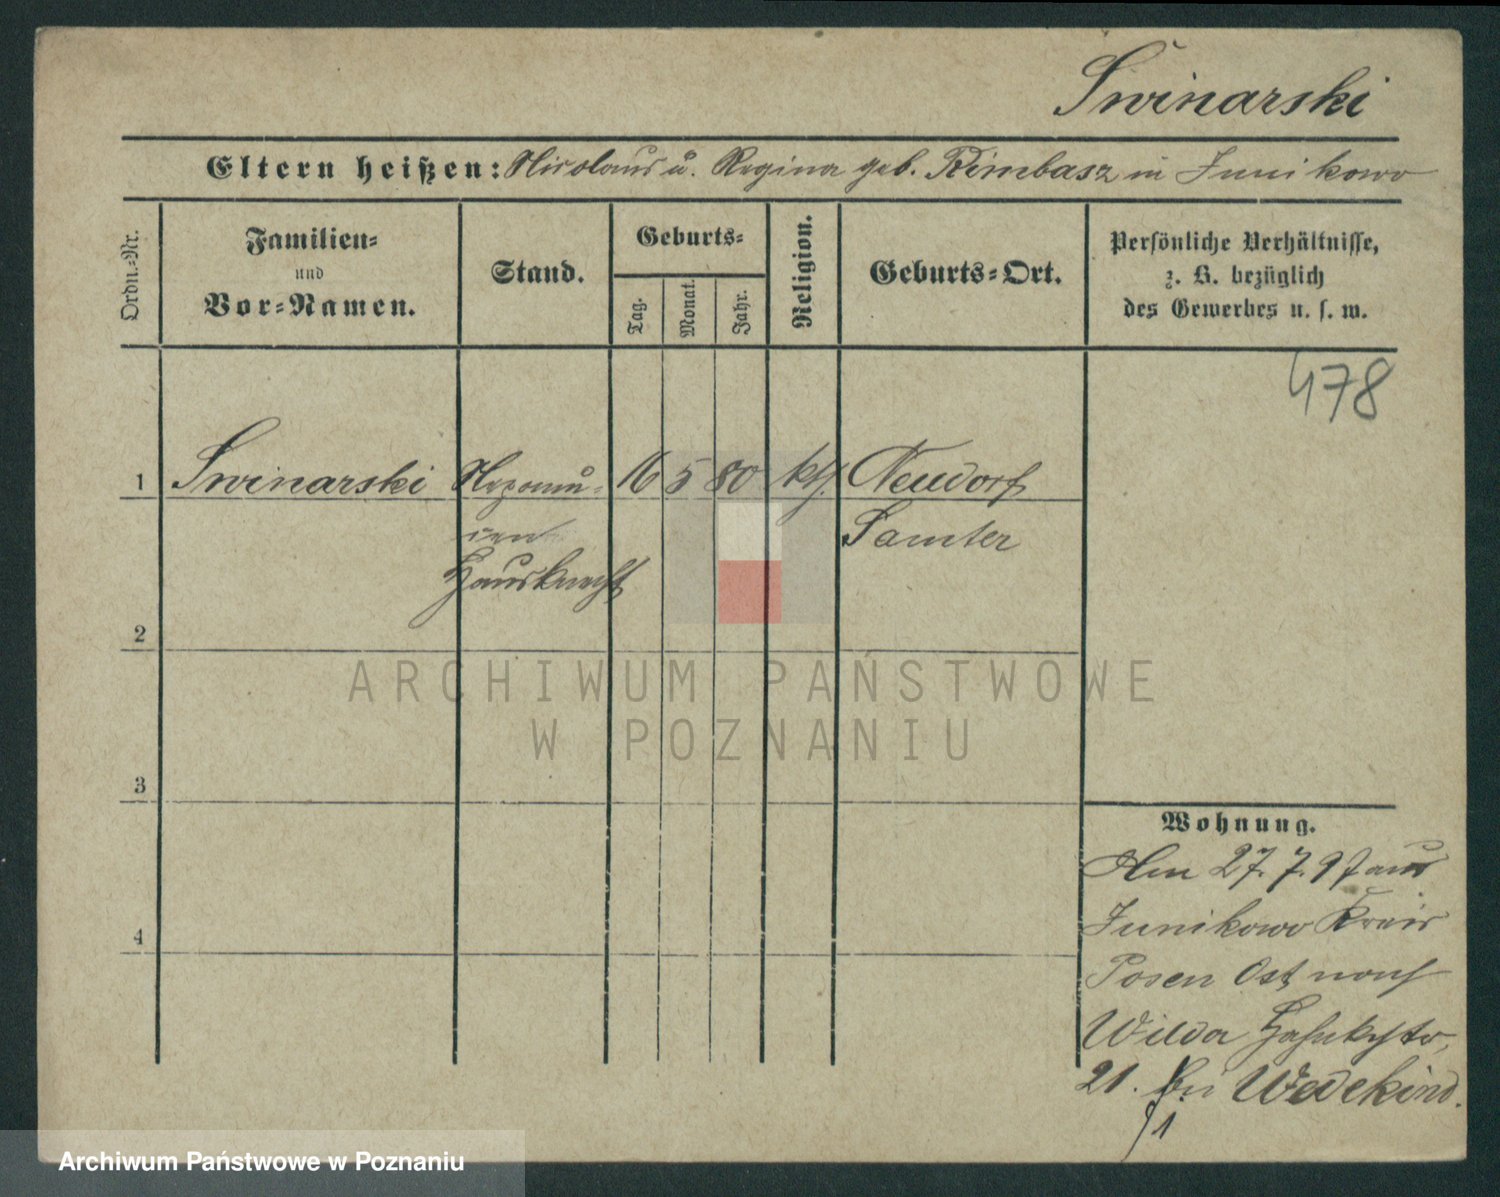 Swinarski
Eltern heißen: Nicolaus u. Regina geb. Rimbasz in Junikowo
Ordn.-Nr.
Familien-
und
Vor-Namen.
Stand.
Geburts-
Tag.
Monat.
Jahr.
Religion.
Geburts-Ort.
Persönliche Verhältnisse,
z. B. bezüglich
des Gewerbes u. s. w.
478
1 Swinarski Nepomu- 16 5 80 kth. Neudorf
cen Samter
Hausknecht
2
3
4
Wohnung.
Am 27.7.97 aus
Junikowo Kreis
Posen Ost nach
Wilda
21. bei Wedekind.
1
ARCHIWUM PAŃSTWOWE
W POZNANIU
Archiwum Państwowe w Poznaniu